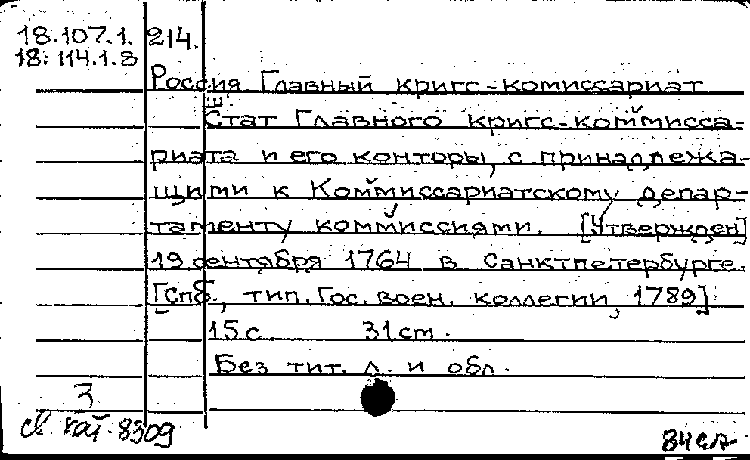 18.107.1.214.
18:114.1.3
Россия. Главный кригс-комиссариат
Штат Главного кригс-коммисса-
риата и его конторы, с принадлежа-
щими к Коммиссариатскому депар-
таменту коммиссиями. [Утвержден]
19 сентября 1764 в Санктпетербурге.
[Спб., тип. Гос. воен. коллегии, 1789]
15 с. 31 cm.
Без тит. л. и обл.
3
св. кат. 8309